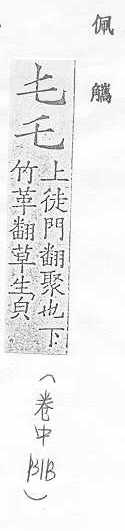 佩觿
乇
上徒門翻聚也下
竹革翻草生皃
(卷中